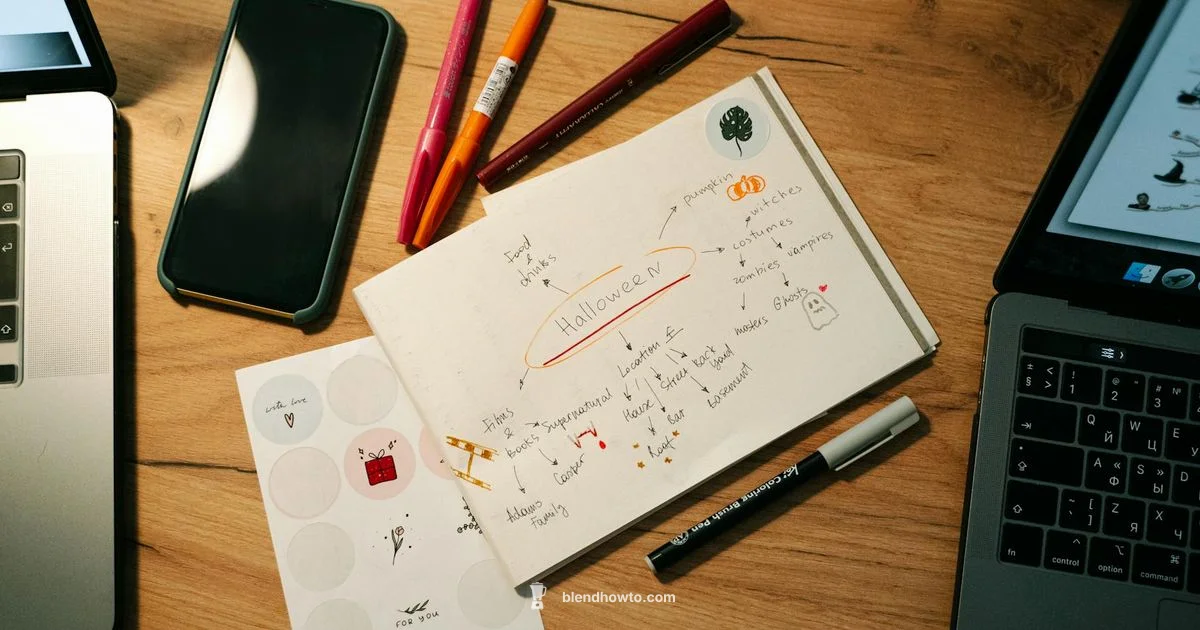 Halloween
pumpkin
witches
costumes
zombies
vampires
Ghosts
masters
Food
&
drinks
Location
House
Street
Back
Yard
Bar
basement
Roof
Films
&
Books
Supernatural
Casper
Adams
Family
with love
FOR YOU
Coloring Brush Pen
blendhowto.com
± §
> <
!
1
@
2
"
№
3
#
Q
Й
W
Ц
E
A
Ф
S
Ы
D
Z
Я
X
Ч
~
[
]
fn
control
option
command
⌃
⌥
⌘